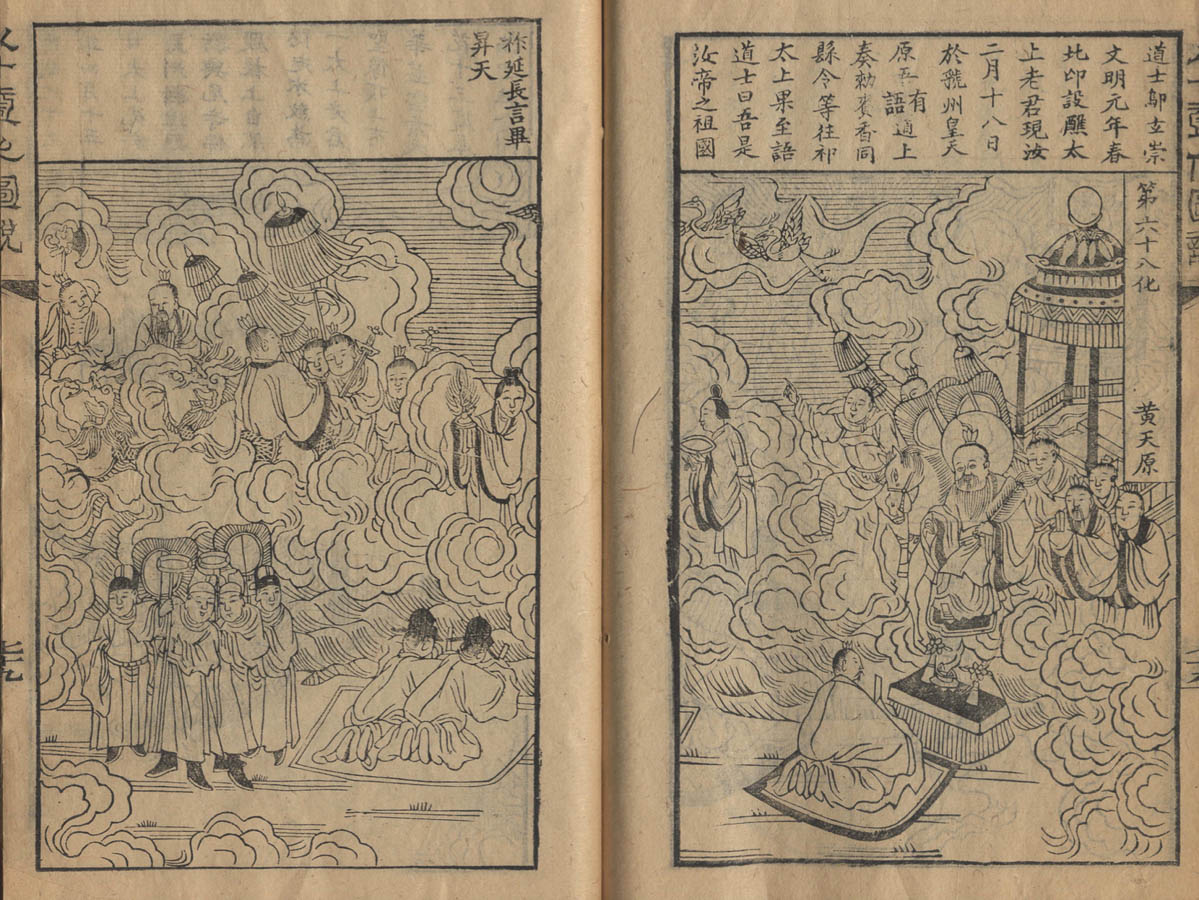 道士鄔玄崇
文明元年春
比印設醮太
上老君現汝
二月十八日
於虢州皇天
原有
吾語道上
奏勅賚香同
縣令等往祁
太上果至語
道士曰吾是
汝帝之祖國
第六十八化
黄天原
祚延長言畢
昇天